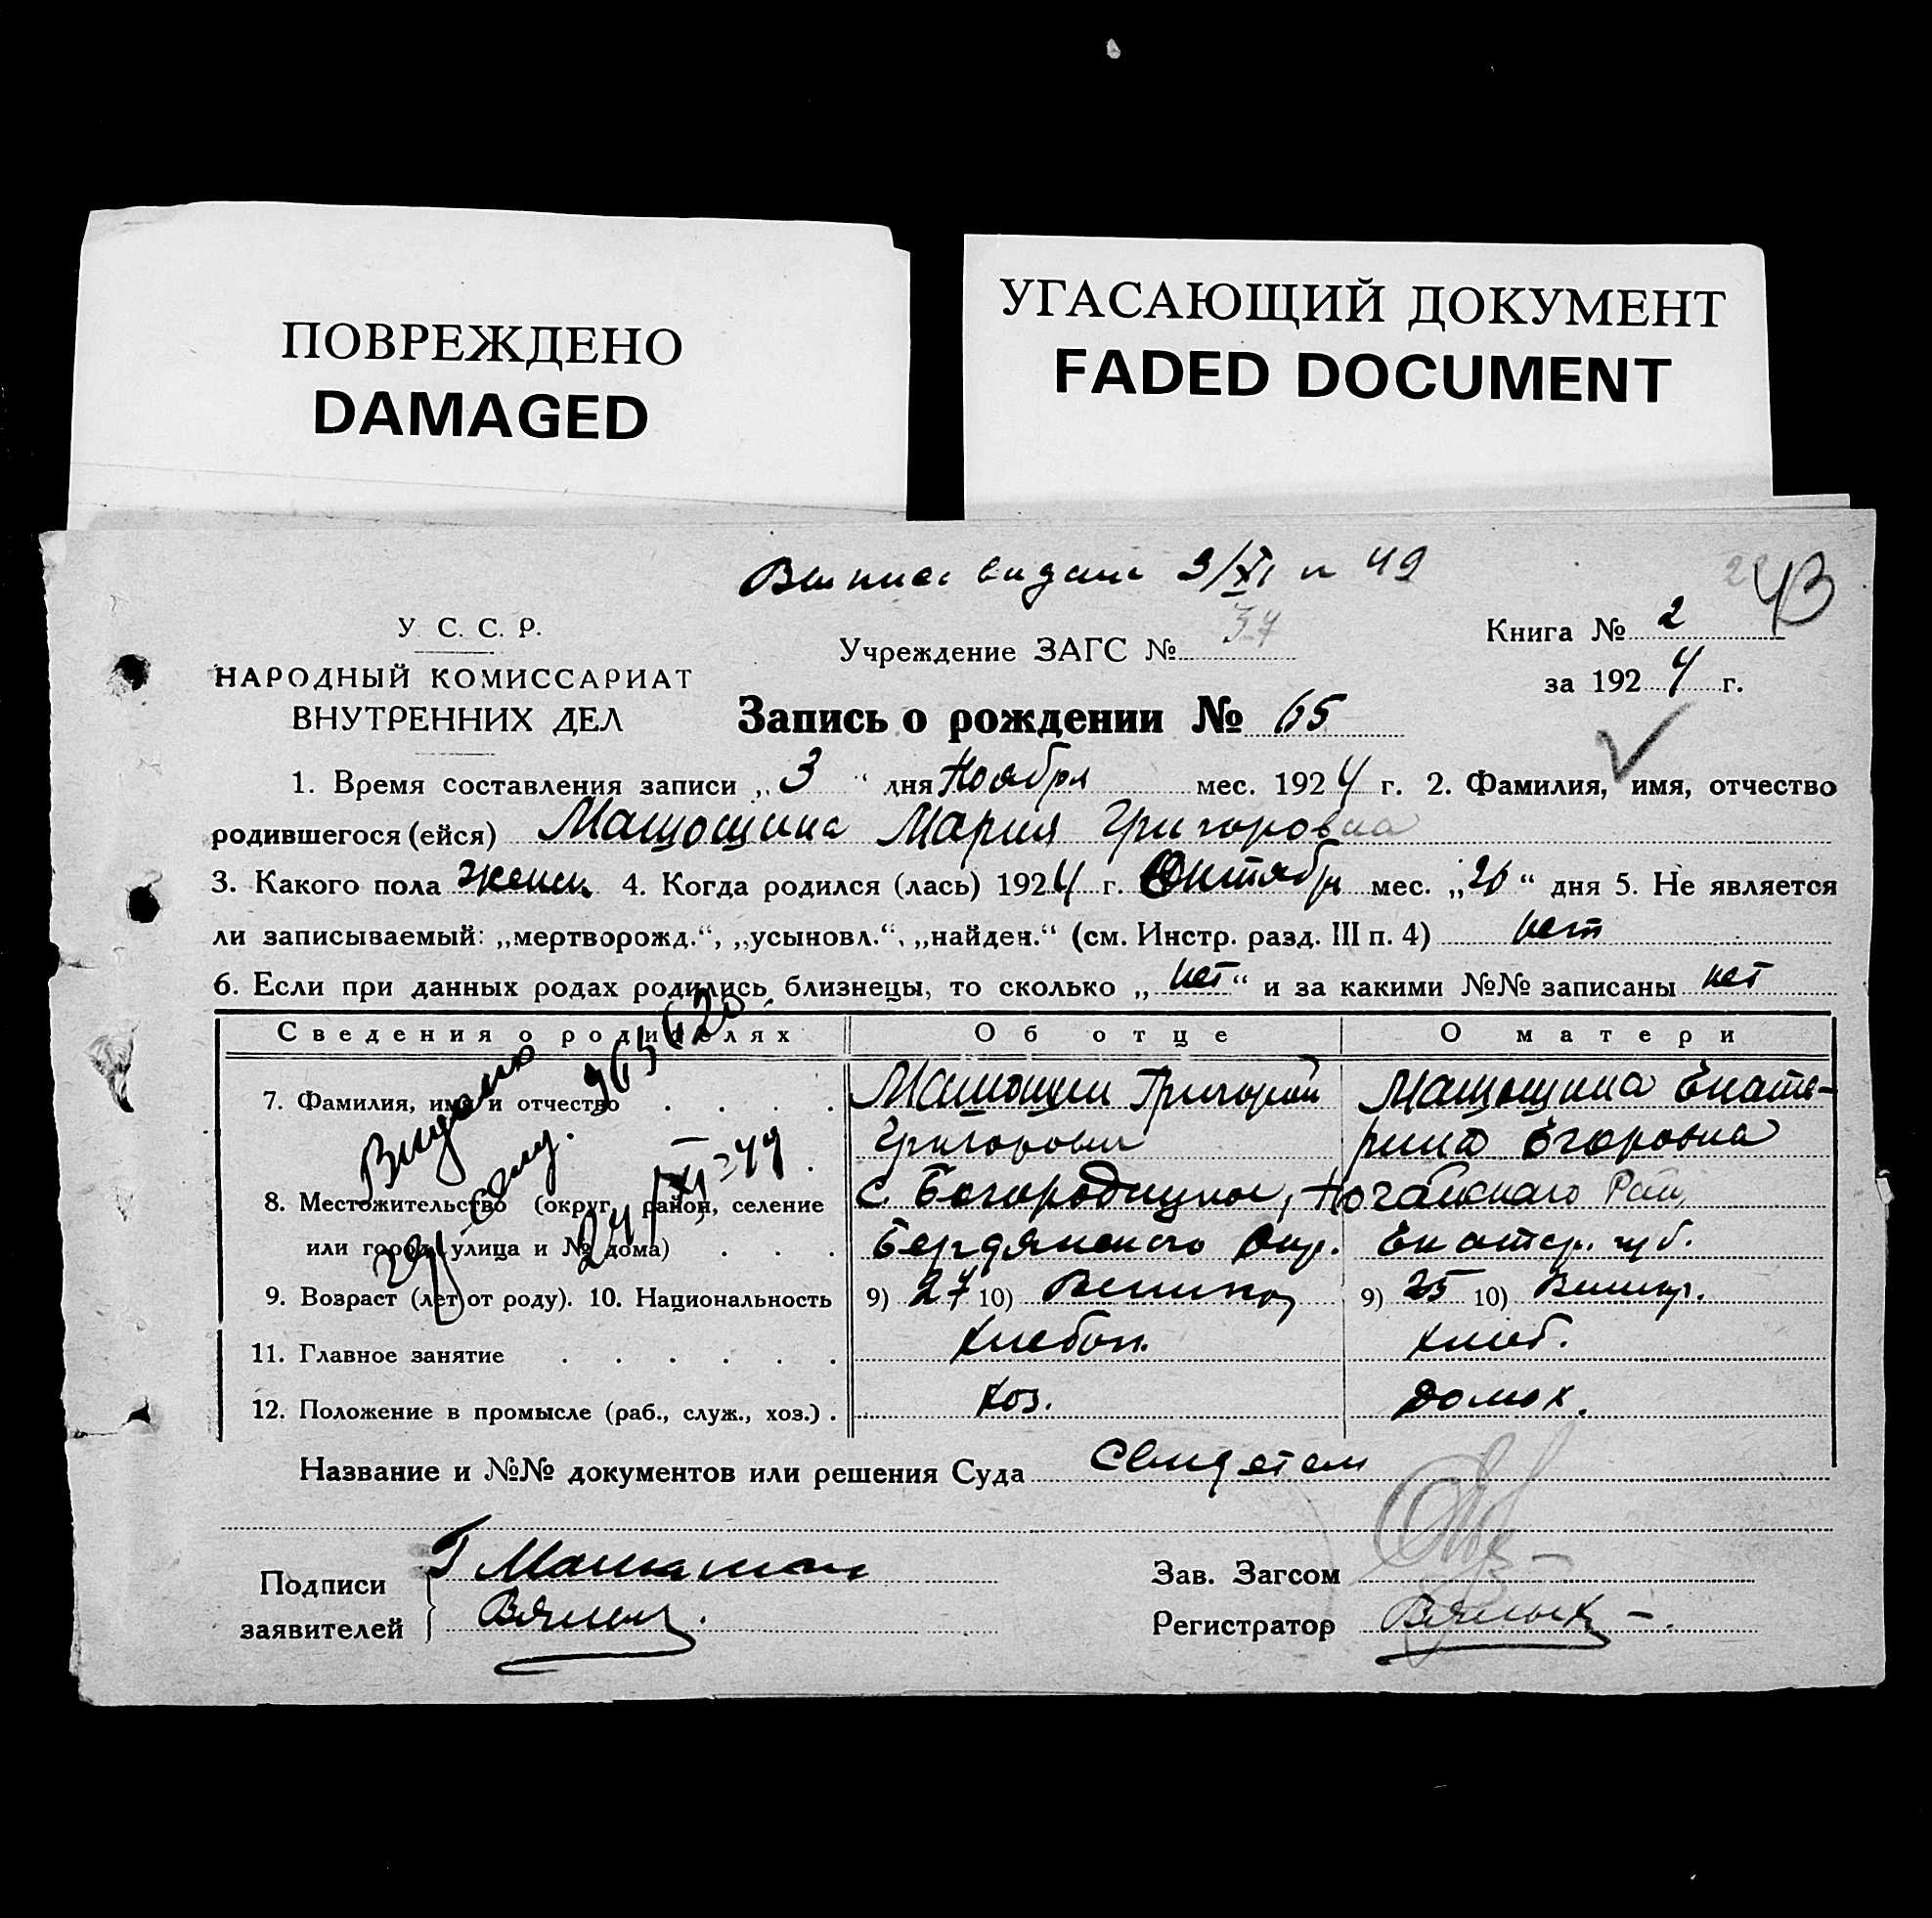 ПОВРЕЖДЕНО
DAMAGED
УГАСАЮЩИЙ ДОКУМЕНТ
FADED DOCUMENT
3/XI 49
43
У. С. С. Р.
НАРОДНЫЙ КОМИССАРИАТ
ВНУТРЕННИХ ДЕЛ
Учреждение ЗАГС № 34
Книга № 2
за 1924 г.
Запись о рождении № 65
1. Время составления записи „3“ дня Ноября мес. 1924 г. 2. Фамилия, имя, отчество
родившегося (ейся) Мария Григоровна
3. Какого пола женск 4. Когда родился (лась) 1924 г. Октября мес. „26“ дня 5. Не является
ли записываемый: „мертворожд.“, „усыновл.“, „найден.“ (см. Инстр. разд. III п. 4) нет
6. Если при данных родах родились близнецы, то сколько „нет“ и за какими №№ записаны нет
Сведения о родителях Об отце О матери
7. Фамилия, имя и отчество Григорий Екате-
Григорович рина Егоровна
8. Местожительство (округ, район, селение с. Богородицкое, Ногайского Рай.
или город, улица и № дома) Бердянского Окр. Екатер. губ.
9. Возраст (лет от роду). 10. Национальность 9) 27 10) 9) 25 10)
11. Главное занятие хлебоп. хлеб.
12. Положение в промысле (раб., служ., хоз.) хоз. домох.
Название и №№ документов или решения Суда
Подписи
заявителей
Зав. Загсом
Регистратор